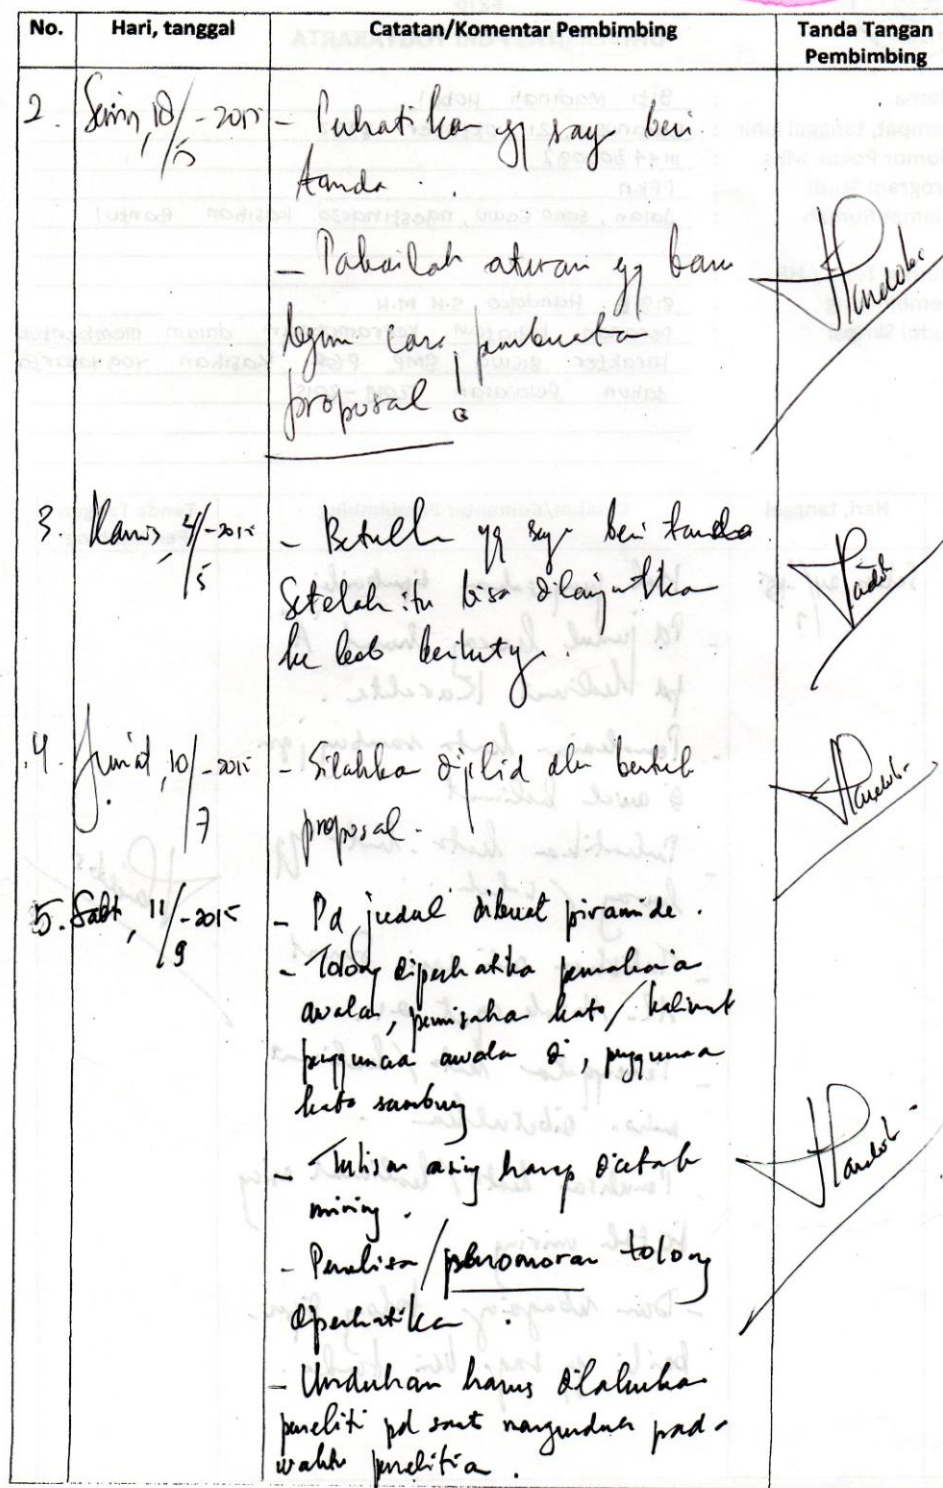 No. Hari, tanggal Catatan/Komentar Pembimbing Tanda Tangan Pembimbing
2. Senin, 18/5-2015 - Perhatikan yg saya beri
tanda.
- Pakailah aturan yg baru
dlm cara pembuatan
proposal.
Handoko
3. Kamis, 4/5-2015 - Betulkan yg saya beri tanda
Setelah itu bisa dilanjutkan
ke bab berikutnya.
4. Jum'at, 10/7-2015 - Silahkan dijilid dlm bentuk
proposal.
Handoko
5. Sabtu, 11/9-2015 - Pd judul dibuat piramide.
- Tolong diperhatikan pemakaian
awalan, pemisahan kata/kalimat
penggunaan awalan di, penggunaan
kata sambung
- Tulisan asing harap dicetak
miring.
Handoko
- Penulisan/penomoran tolong
diperhatikan.
- Unduhan harus dilakukan
peneliti pd saat mengunduh pada
waktu penelitian.